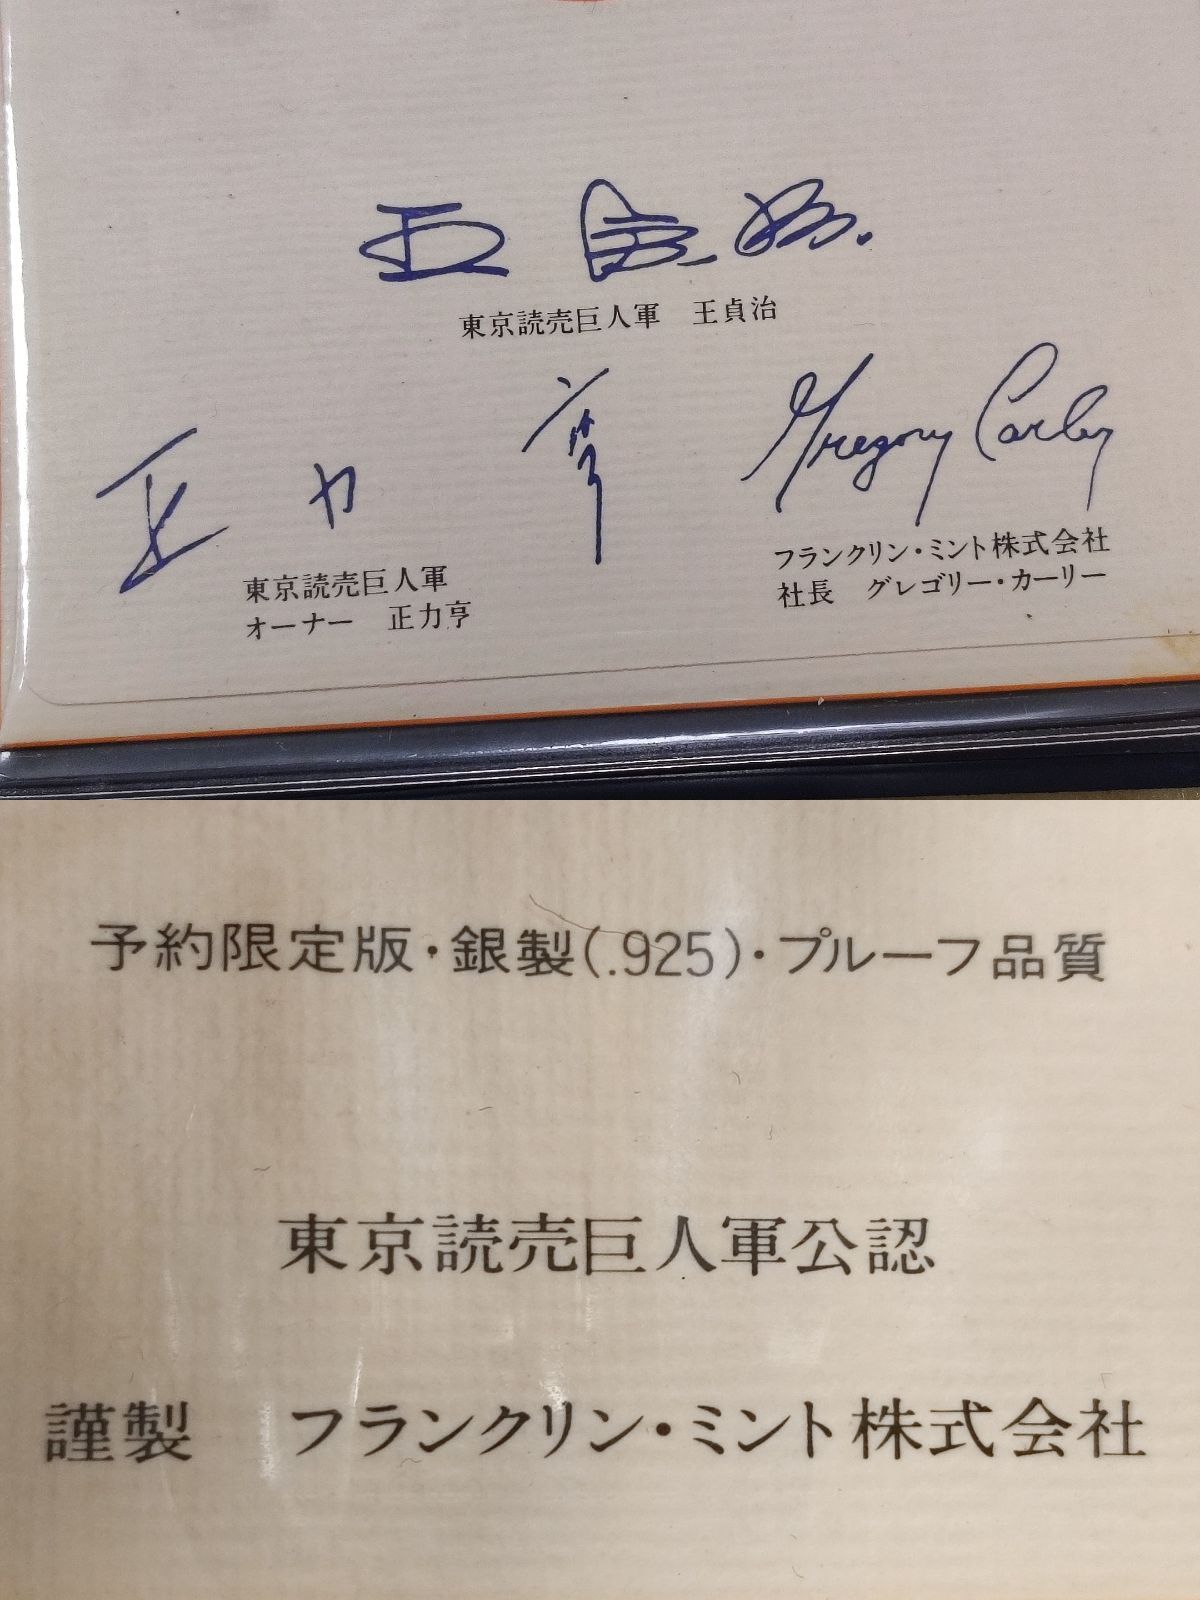 王貞治
東京読売巨人軍 王貞治
正力亨
Gregory Carley
東京読売巨人軍
オーナー 正力亨
フランクリン・ミント株式会社
社長 グレゴリー・カーリー
予約限定版・銀製(.925)・プルーフ品質
東京読売巨人軍公認
謹製 フランクリン・ミント株式会社